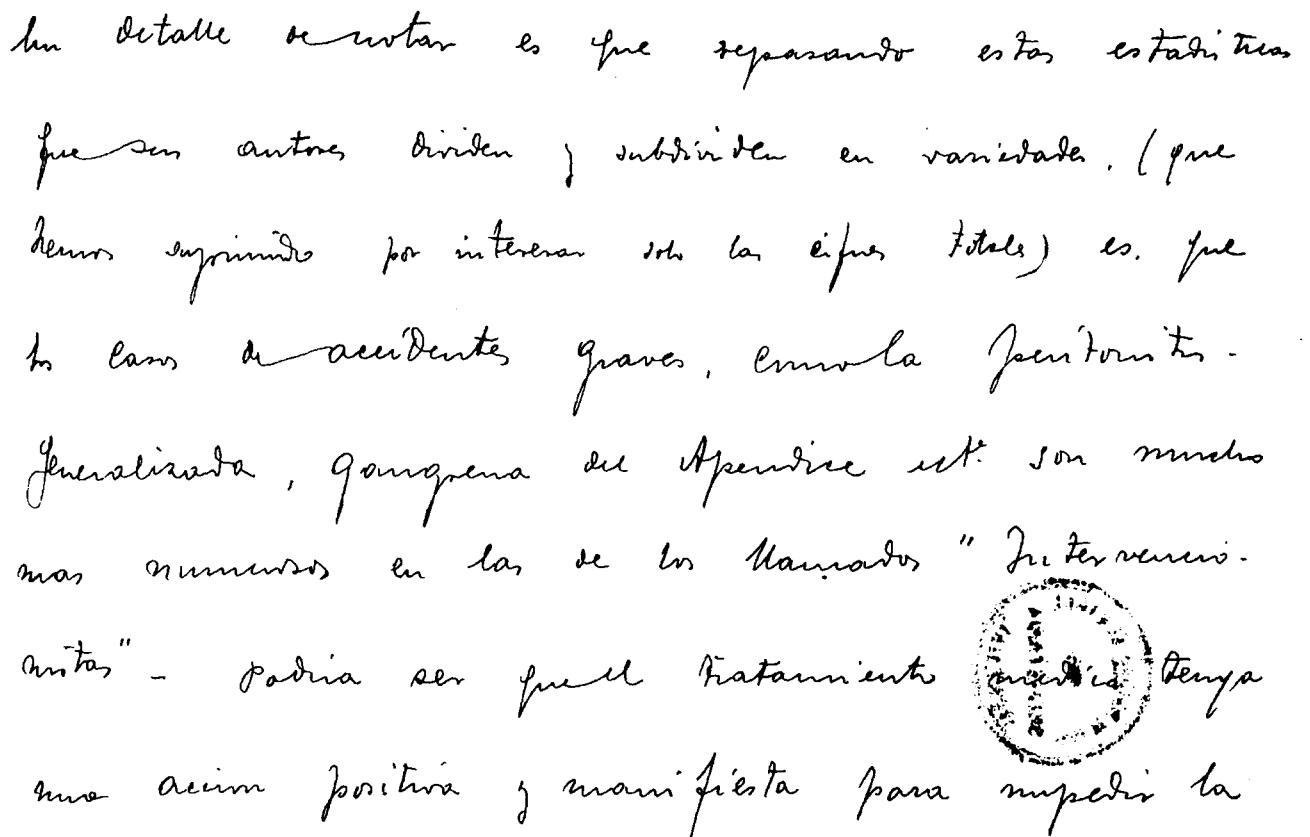 Un detalle de notar es que repasando estas estadisticas
que sus autores dividen y subdividen en variedades. (que
hemos suprimido por interesar solo las cifras totales) es. que
los casos de accidentes graves, como la peritonitis-
generalizada, gangrena del Apendice ect. son mucho
mas numerosos en las de los llamados "Intervencio-
nistas" - Podria ser que el tratamiento medico tenga
una accion positiva y manifiesta para impedir la